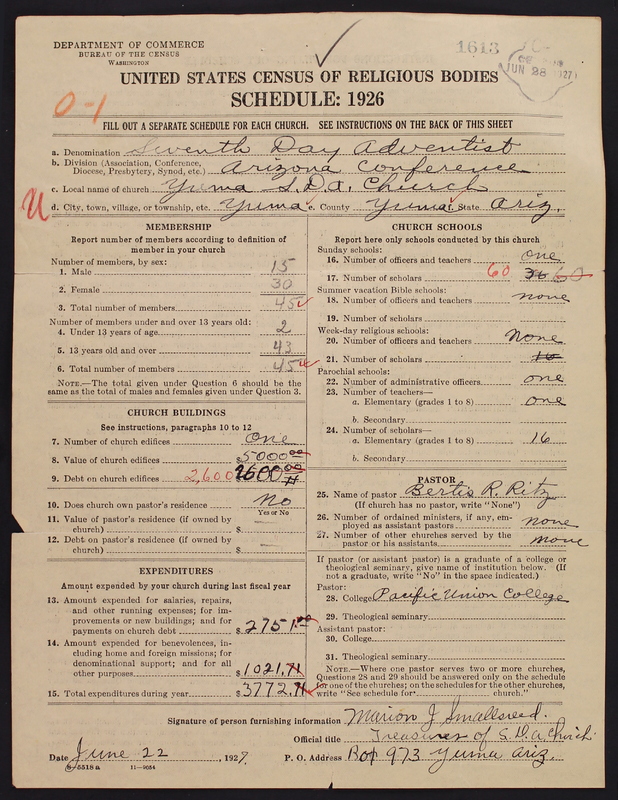 DEPARTMENT OF COMMERCE
BUREAU OF THE CENSUS
WASHINGTON
1613
JUN 28 1927
UNITED STATES CENSUS OF RELIGIOUS BODIES
SCHEDULE: 1926
0-1
FILL OUT A SEPARATE SCHEDULE FOR EACH CHURCH. SEE INSTRUCTIONS ON THE BACK OF THIS SHEET
a. Denomination Seventh Day Adventist
b. Division (Association, Conference, Diocese, Presbytery, Synod, etc.) Arizona Conference
c. Local name of church Yuma S.D.A. Church
d. City, town, village, or township, etc. Yuma e. County Yuma f. State Ariz.
MEMBERSHIP
Report number of members according to definition of
member in your church
Number of members, by sex:
1. Male 15
2. Female 30
3. Total number of members 45
Number of members under and over 13 years old:
4. Under 13 years of age 2
5. 13 years old and over 43
6. Total number of members 45
NOTE.—The total given under Question 6 should be the
same as the total of males and females given under Question 3.
CHURCH BUILDINGS
See instructions, paragraphs 10 to 12
7. Number of church edifices One
8. Value of church edifices $5000 00
9. Debt on church edifices 2,600 2600 00
10. Does church own pastor's residence No
Yes or No
11. Value of pastor's residence (if owned by
church) $
12. Debt on pastor's residence (if owned by
church) $
EXPENDITURES
Amount expended by your church during last fiscal year
13. Amount expended for salaries, repairs,
and other running expenses; for im-
provements or new buildings; and for
payments on church debt $2751.00
14. Amount expended for benevolences, in-
cluding home and foreign missions; for
denominational support; and for all
other purposes $1021.71
15. Total expenditures during year $3772.71
CHURCH SCHOOLS
Report here only schools conducted by this church
Sunday schools:
16. Number of officers and teachers one
17. Number of scholars 60 36 60
Summer vacation Bible schools:
18. Number of officers and teachers none
19. Number of scholars
Week-day religious schools:
20. Number of officers and teachers None
21. Number of scholars 16
Parochial schools:
22. Number of administrative officers one
23. Number of teachers—
a. Elementary (grades 1 to 8) one
b. Secondary
24. Number of scholars—
a. Elementary (grades 1 to 8) 16
b. Secondary
PASTOR
25. Name of pastor Bertis R. Ritz
(If church has no pastor, write "None")
26. Number of ordained ministers, if any, em-
ployed as assistant pastors none
27. Number of other churches served by the
pastor or his assistants none
If pastor (or assistant pastor) is a graduate of a college or
theological seminary, give name of institution below. (If
not a graduate, write "No" in the space indicated.)
Pastor:
28. College Pacific Union College
29. Theological seminary
Assistant pastor:
30. College
31. Theological seminary
NOTE.—Where one pastor serves two or more churches,
Questions 28 and 29 should be answered only on the schedule
for one of the churches; on the schedules for the other churches,
write "See schedule for church."
Signature of person furnishing information Marion J Smallwood.
Official title Treasurer of S.D.A. Church
Date June 22, 1927. P. O. Address Box 973 Yuma Ariz.
8-5518 a 11-9054